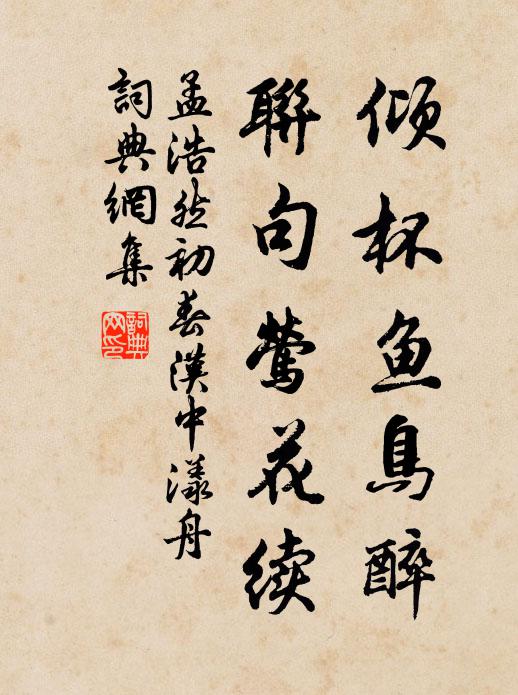 倾杯鱼鸟醉
聯句莺花续
孟浩然初春漢中漾舟
詞典網集
詞典网印